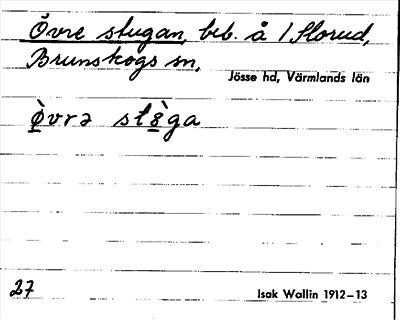 Övre stugan, beb. å 1 Slorud,
Brunskogs sn,
Jösse hd, Värmlands län
ø̀vrə st8̀ga
27
Isak Wallin 1912–13